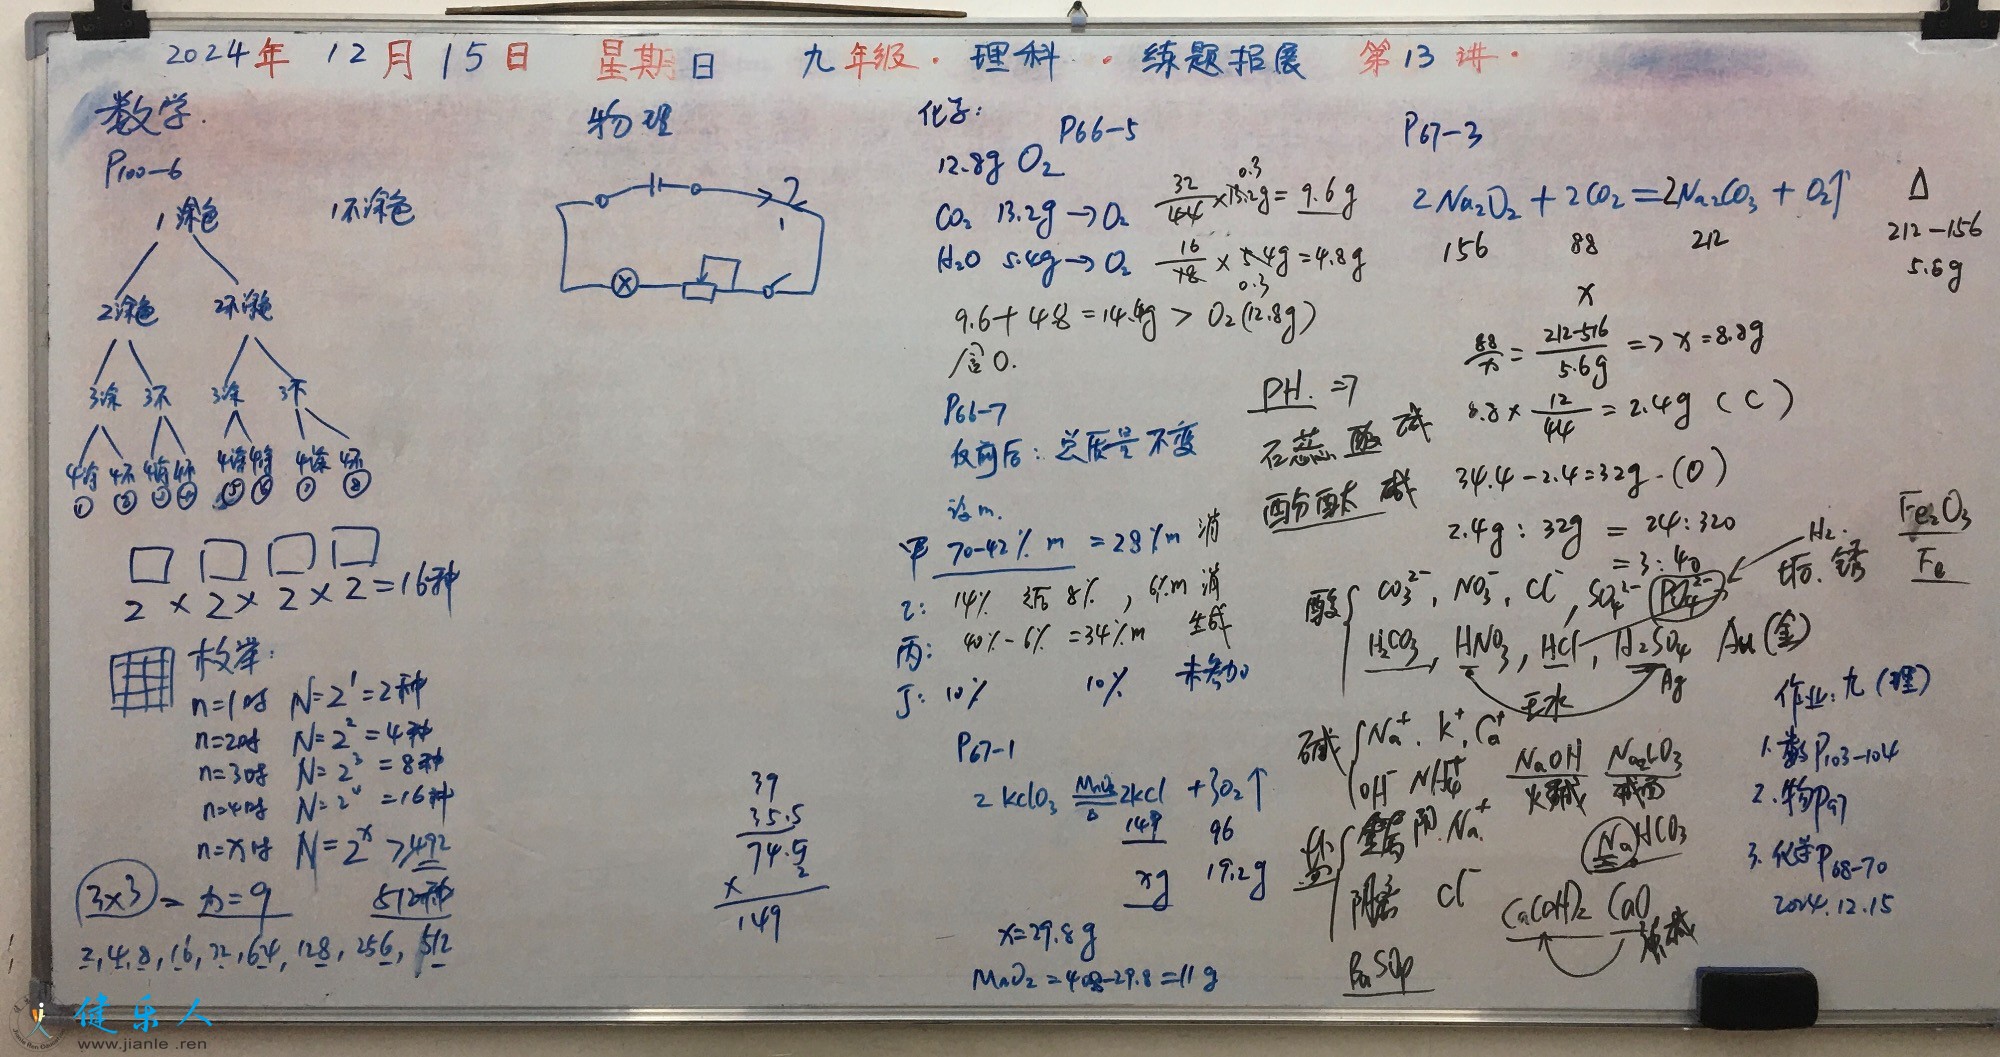 2024年 12月 15日 星期日 九年级·理科·练题拓展 第13讲·
数学
P100-6
1涂色 1不涂色
2涂色 2不涂色
3涂 3不 3涂 3不
① ② ③ ④ ⑤ ⑥ ⑦ ⑧
2 × 2 × 2 × 2 = 16种
枚举:
n=1时 N=2¹=2种
n=2时 N=2²=4种
n=3时 N=2³=8种
n=4时 N=2⁴=16种
n=x时 N=2ˣ>492
3×3 = n=9 512种
2,4,8,16,32,64,128,256,512
物理
39
35.5
74.5
2
×
149
化学:
P66-5
12.8g O₂
CO₂ 13.2g→O₂ 32/44×13.2g=9.6g
0.3
H₂O 5.4g→O₂ 16/18×5.4g=4.8g
0.3
9.6+4.8=14.4g > O₂(12.8g)
含O.
P66-7
反前后: 总质量不变
设m.
甲 70-42% m =28%m 消
乙: 14% 后 8%, 6%m 消
丙: 40%-6% =34%m 生成
丁: 10% 10% 未参加
P67-1
2KClO₃ MnO₂ △ 2KCl +3O₂↑
149 96
xg 19.2g
x=29.8g
MnO₂=40g-29.8=11g
PH. =7
石蕊 酸 碱
酚酞 碱
P67-3
2Na₂O₂+2CO₂=2Na₂CO₃+O₂↑ △
156 88 212 212-156
5.6g
x
88/x=212-516/5.6g=>x=8.8g
8.8×12/44=2.4g (C)
34.4-2.4=32g.(O)
2.4g:32g =24:320
=3:40
H₂. 锈 Fe₂O₃
Fe
酸 CO₃²⁻, NO₃⁻, Cl⁻, SO₄²⁻ PO₄²⁻
H₂CO₃, HNO₃, HCl, H₂SO₄ Au(金)
王水 Ag
碱 Na⁺. K⁺. Ca⁺
OH⁻ NH₄⁺ NaOH Na₂CO₃
火碱 碱面
盐 金属 阳. Na⁺ NaHCO₃
阴离 Cl⁻ Ca(OH)₂ CaO
作业:九(理)
1.数P103-104
2.物P97
3.化学P68-70
2024.12.15
健乐人
www.jianle.ren